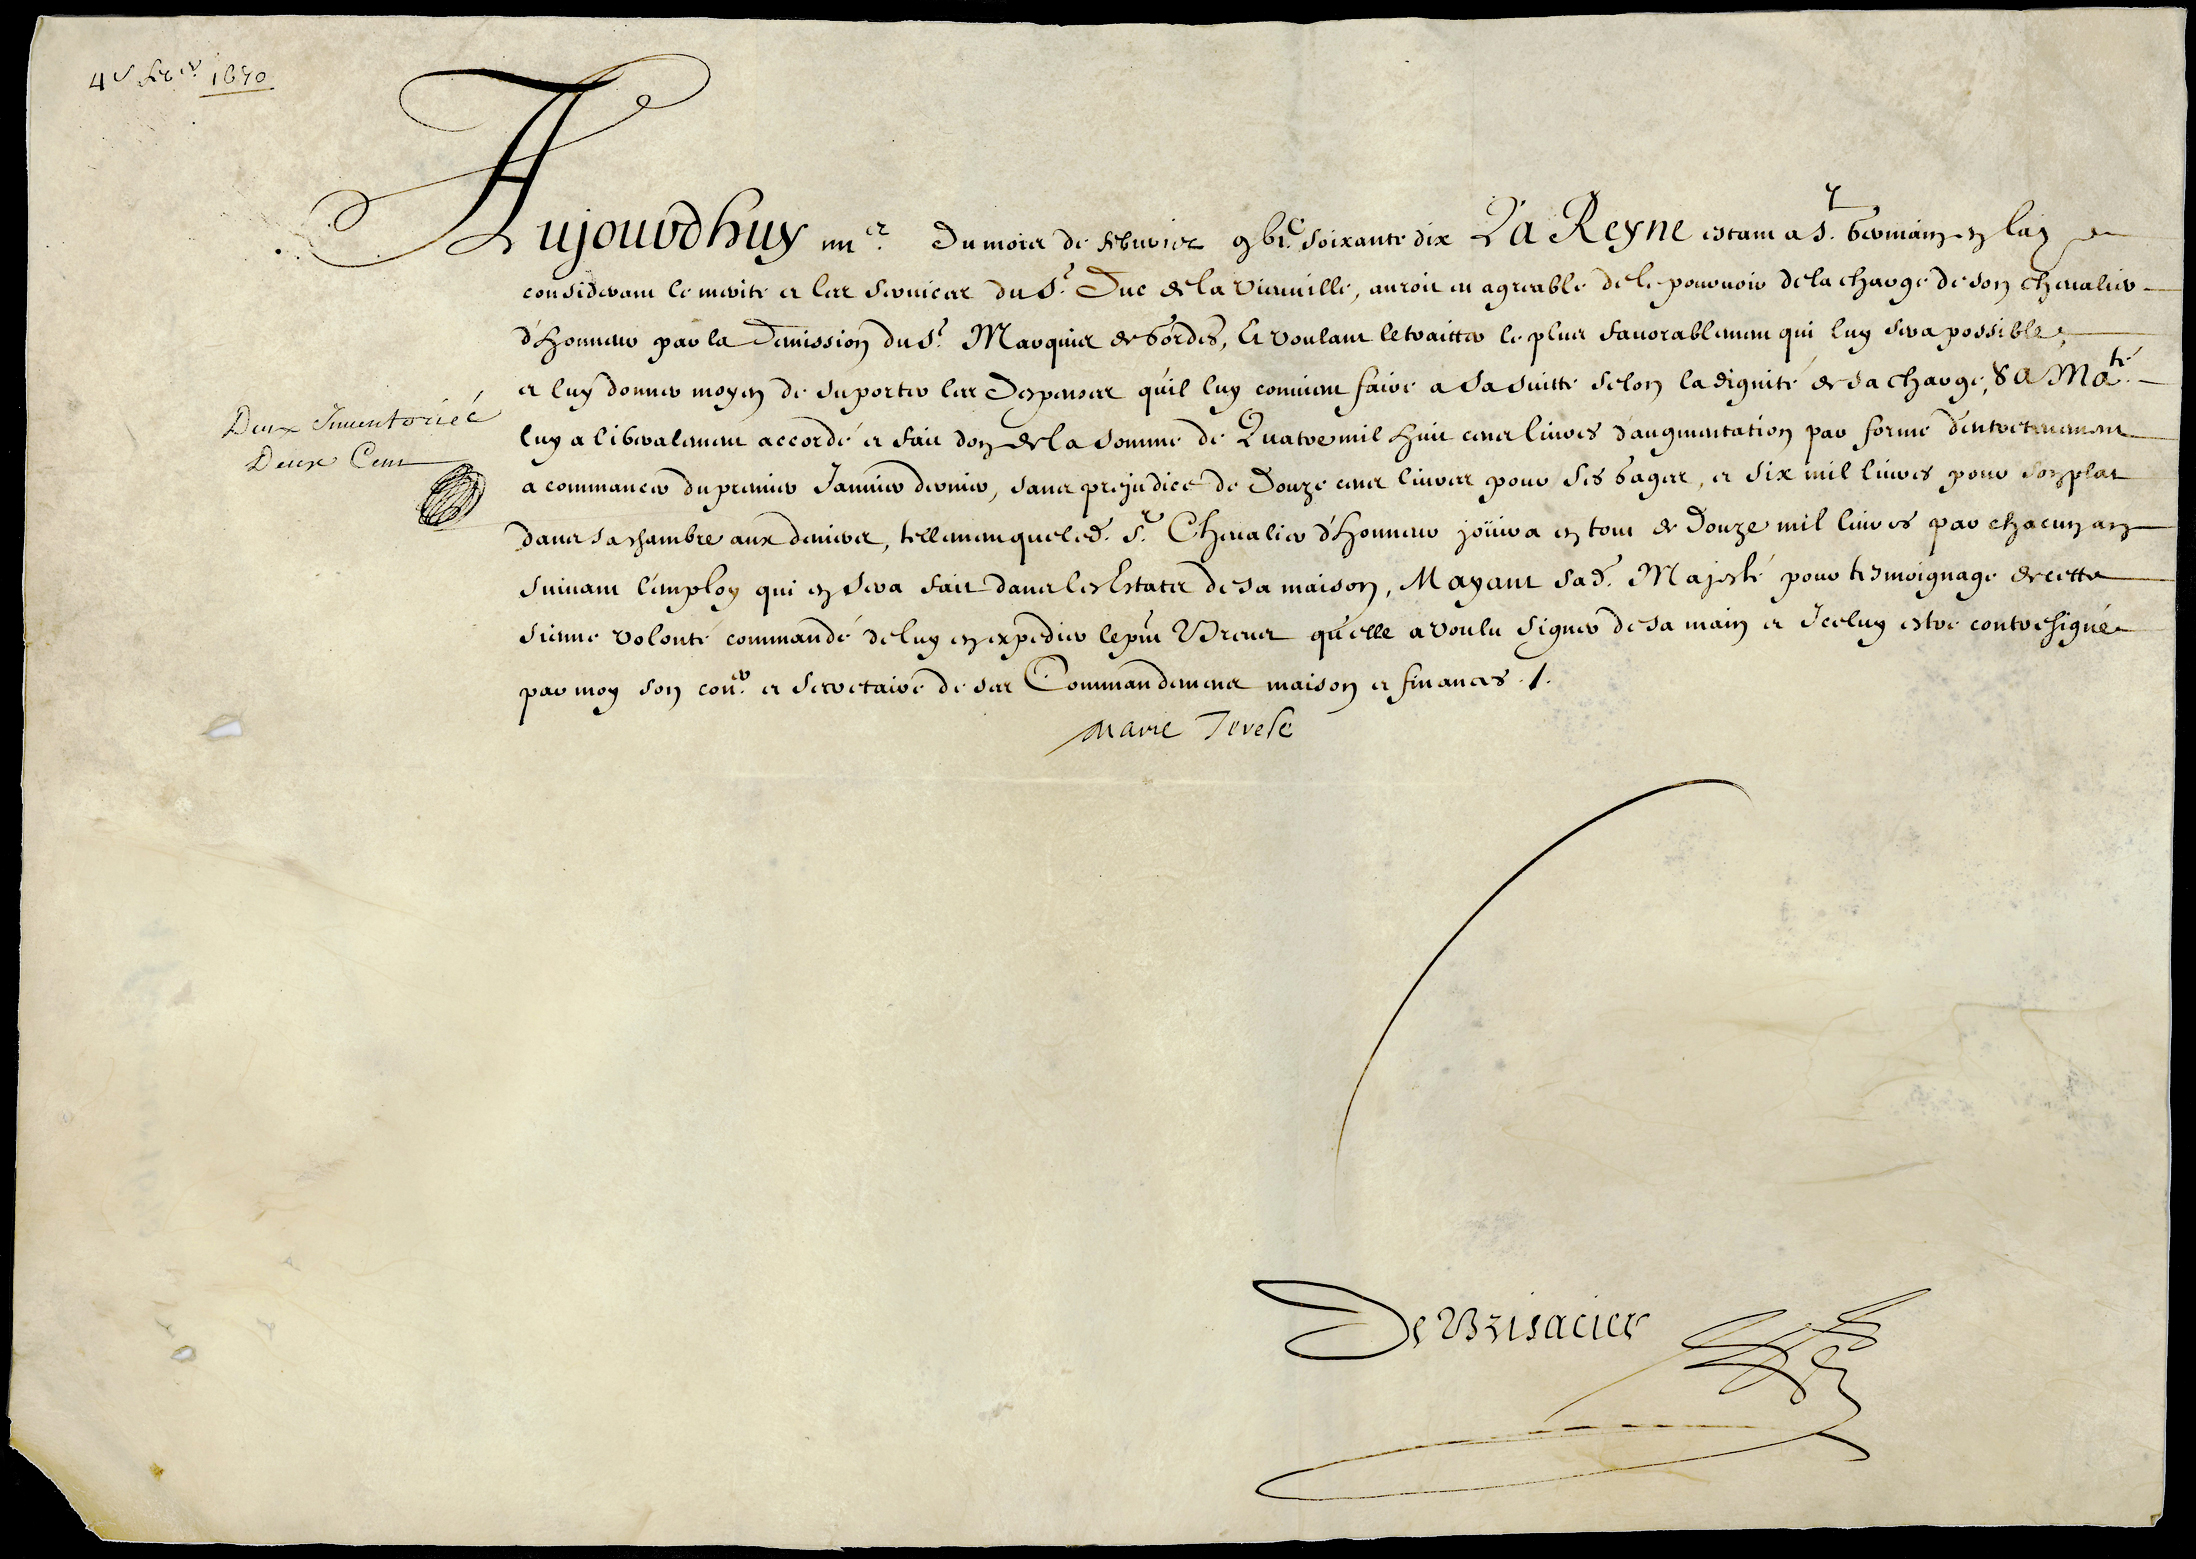 4e febr 1670
Aujourdhuy iiiie du mois de febvrier gbic soixante dix La Reyne estant a St Germain en laye
considerant le merite et les services du Sr Duc de la Vieuville, auroit eu agreable de le pourvoir de la charge de son chevalier
d'honneur par la Demission du Sr Marquis de Gordes, Et voulant le traitter le plus favorablement qui luy sera possible,
et luy donner moyen de suporter les Despenses qu'il luy convient faire a sa suitte selon la dignité de sa charge, Sa Maté
luy a liberalement accordé et fait don de la somme de Quatre mil huit cens livres d'augmentation par forme d'entretenement
a commancer du premier Janvier dernier, sans prejudice de Douze cens livres pour ses gages, et six mil livres pour son plat
dans sa chambre aux deniers, tellement que led. Sr Chevalier d'honneur joüira en tout de Douze mil livres par chacun an
suivant l'employ qui en sera fait dans les Estats de sa maison, M'ayant sad. Majesté pour tesmoignage de cette
sienne volonté commandé de luy en expedier le pnt Brevet qu'elle a voulu signer de sa main et Iceluy estre contresigné
par moy son conér et secretaire de ses Commandemens maison et finances ./.
Deux Inventoriéé
Deux Cent
Marie Terese
De Brisacier